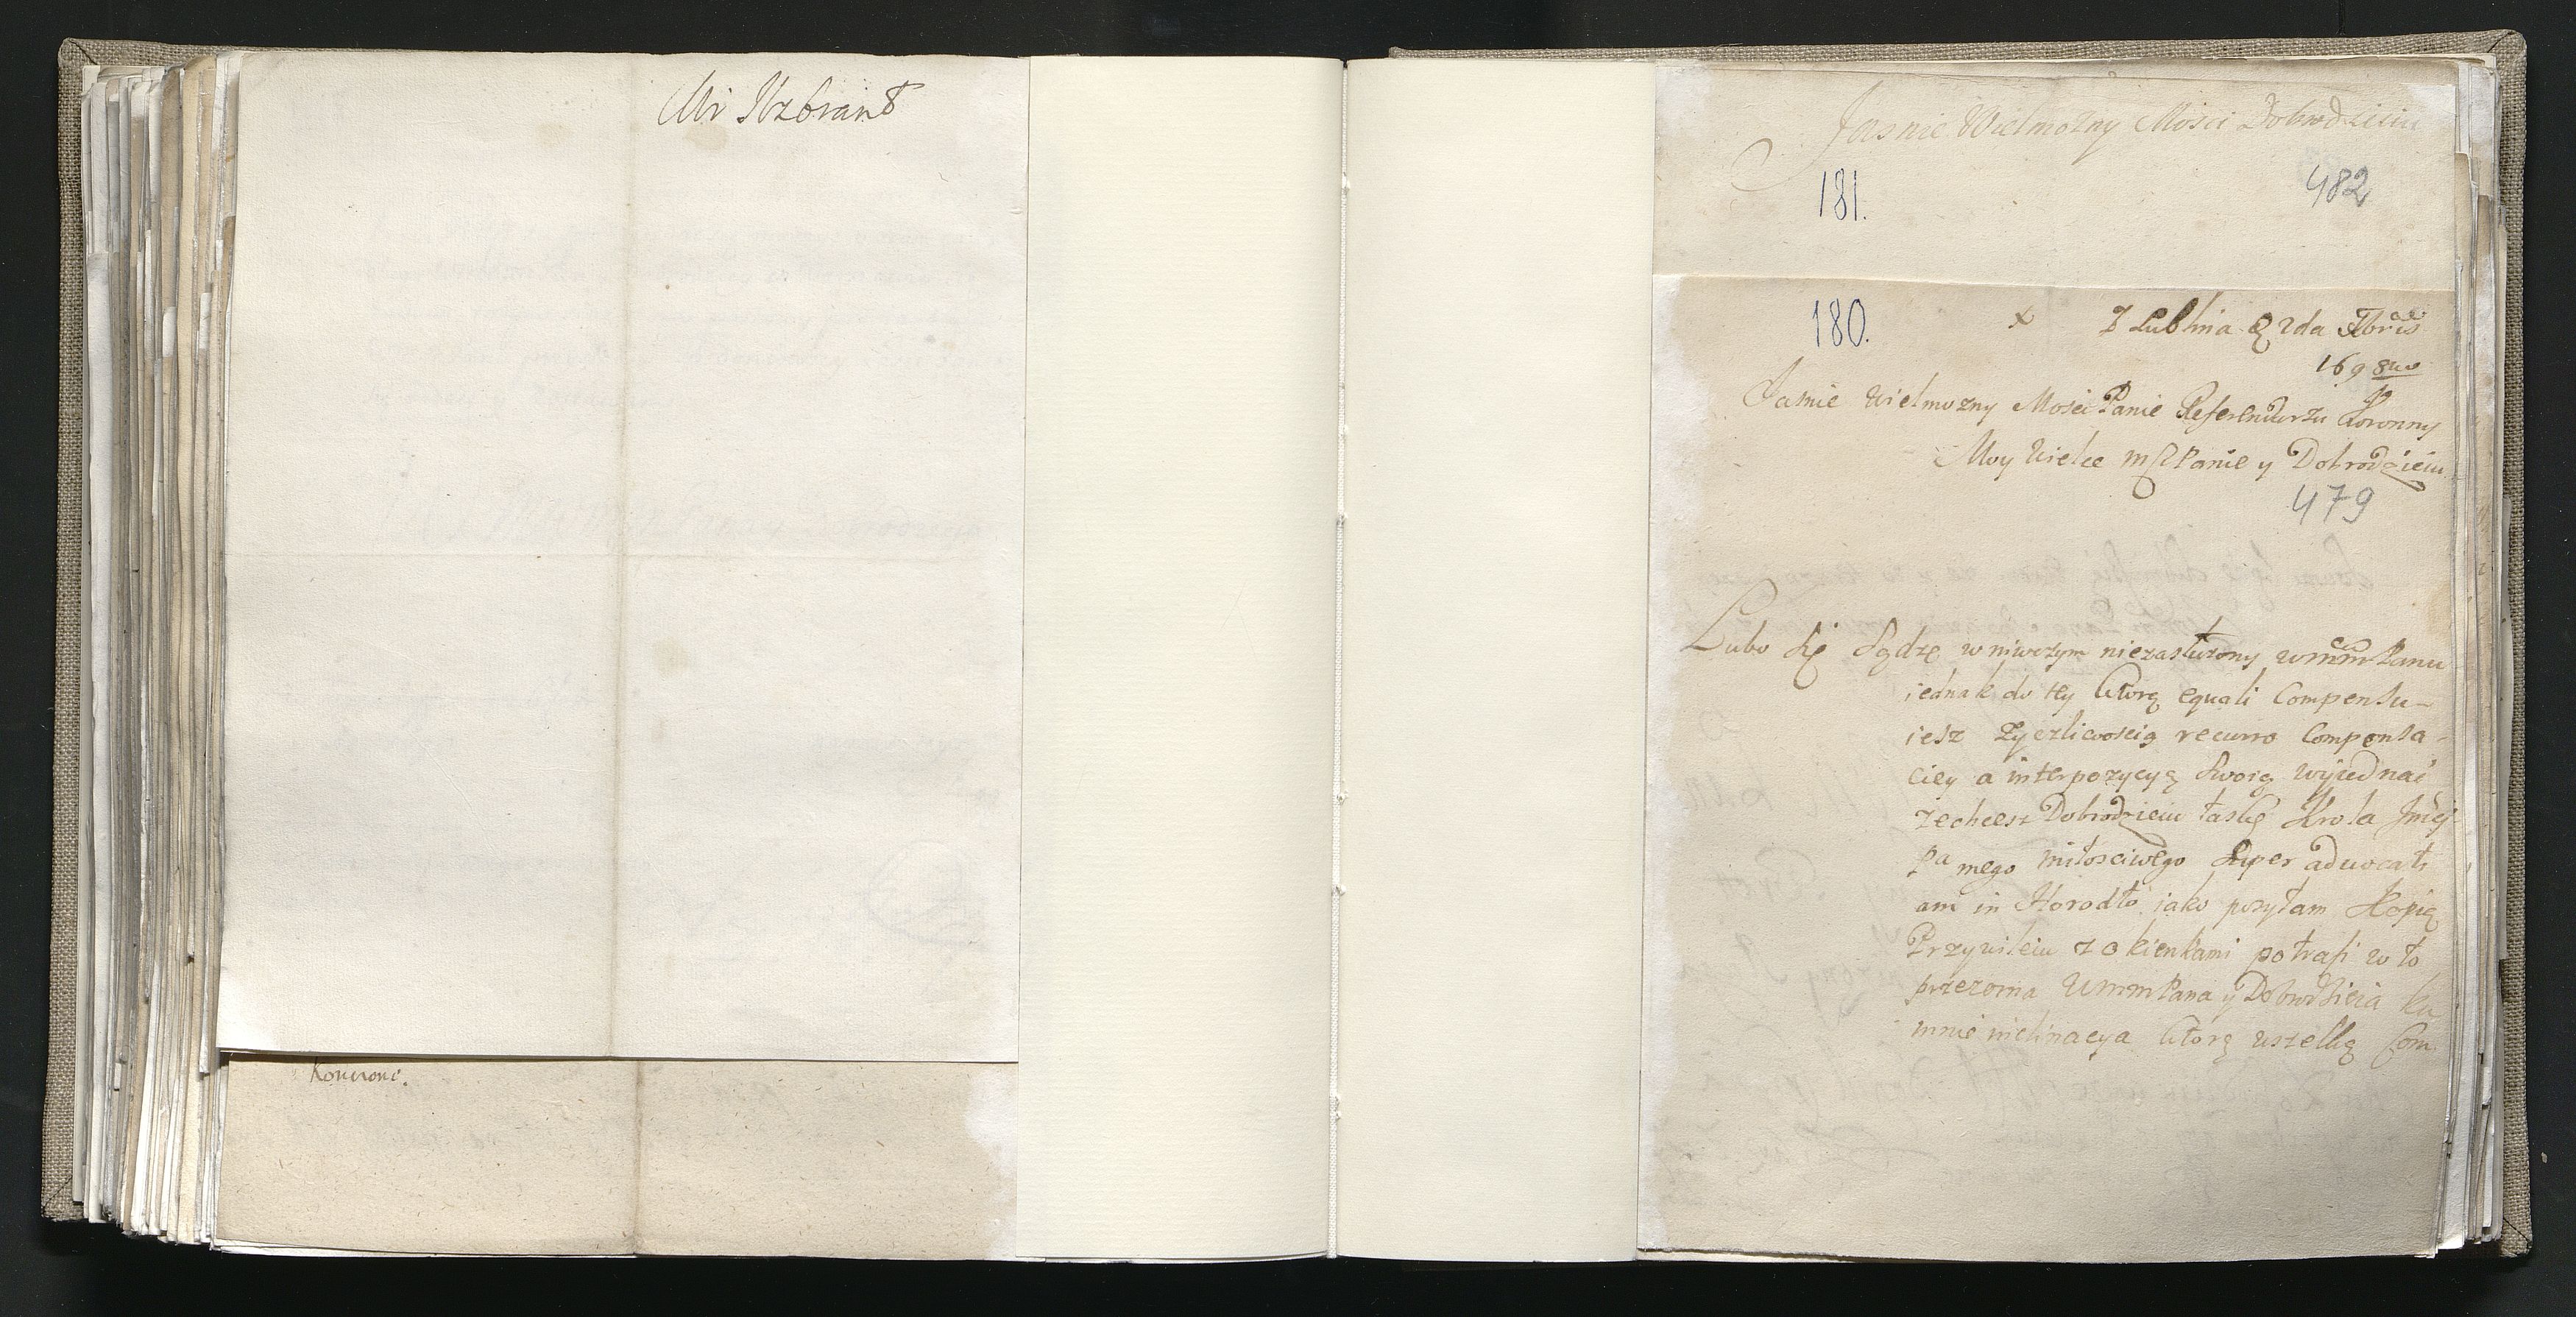 Mr Itzbrant
Konwoni.
Jasnie Wielmozny Mosci Dobrodzieiu
181.
482
180.
x Z Lublina 2da 8bris
1698uo
Jasnie Wielmozny Mosci Panie Referendarzu Koronny
Moy Wielce mśc Panie y Dobrodzieiu
479
Lubo się sądzę w niwczym niezasłużony wmm Panu
iednak do tey ktorą equali Compensu-
iesz zyczliwoscią recurro Compensa-
ciey a interpozycyą swoią wyiednać
zechcesz Dobrodzieiu łaskę Krola Jmści
Pa mego miłosciwego super advocati
am in Horodło iako posyłam Kopią
Przywileiu z okienkami potrafi w to
przezorna Wmm Pana y Dobrodzieia ku
mnie inclinacya ktorą wszelką Com